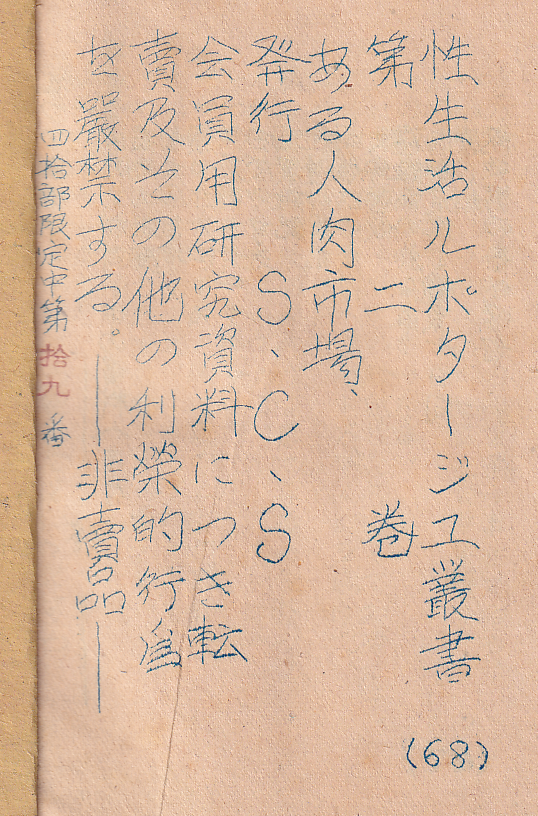 性生活ルポタージエ叢書
第二巻
ある人肉市場、
発行 S、C、S
会員用研究資料につき転
賣及その他の利榮的行為
を嚴禁する。——非賣品——
四拾部限定中第拾九番
(68)